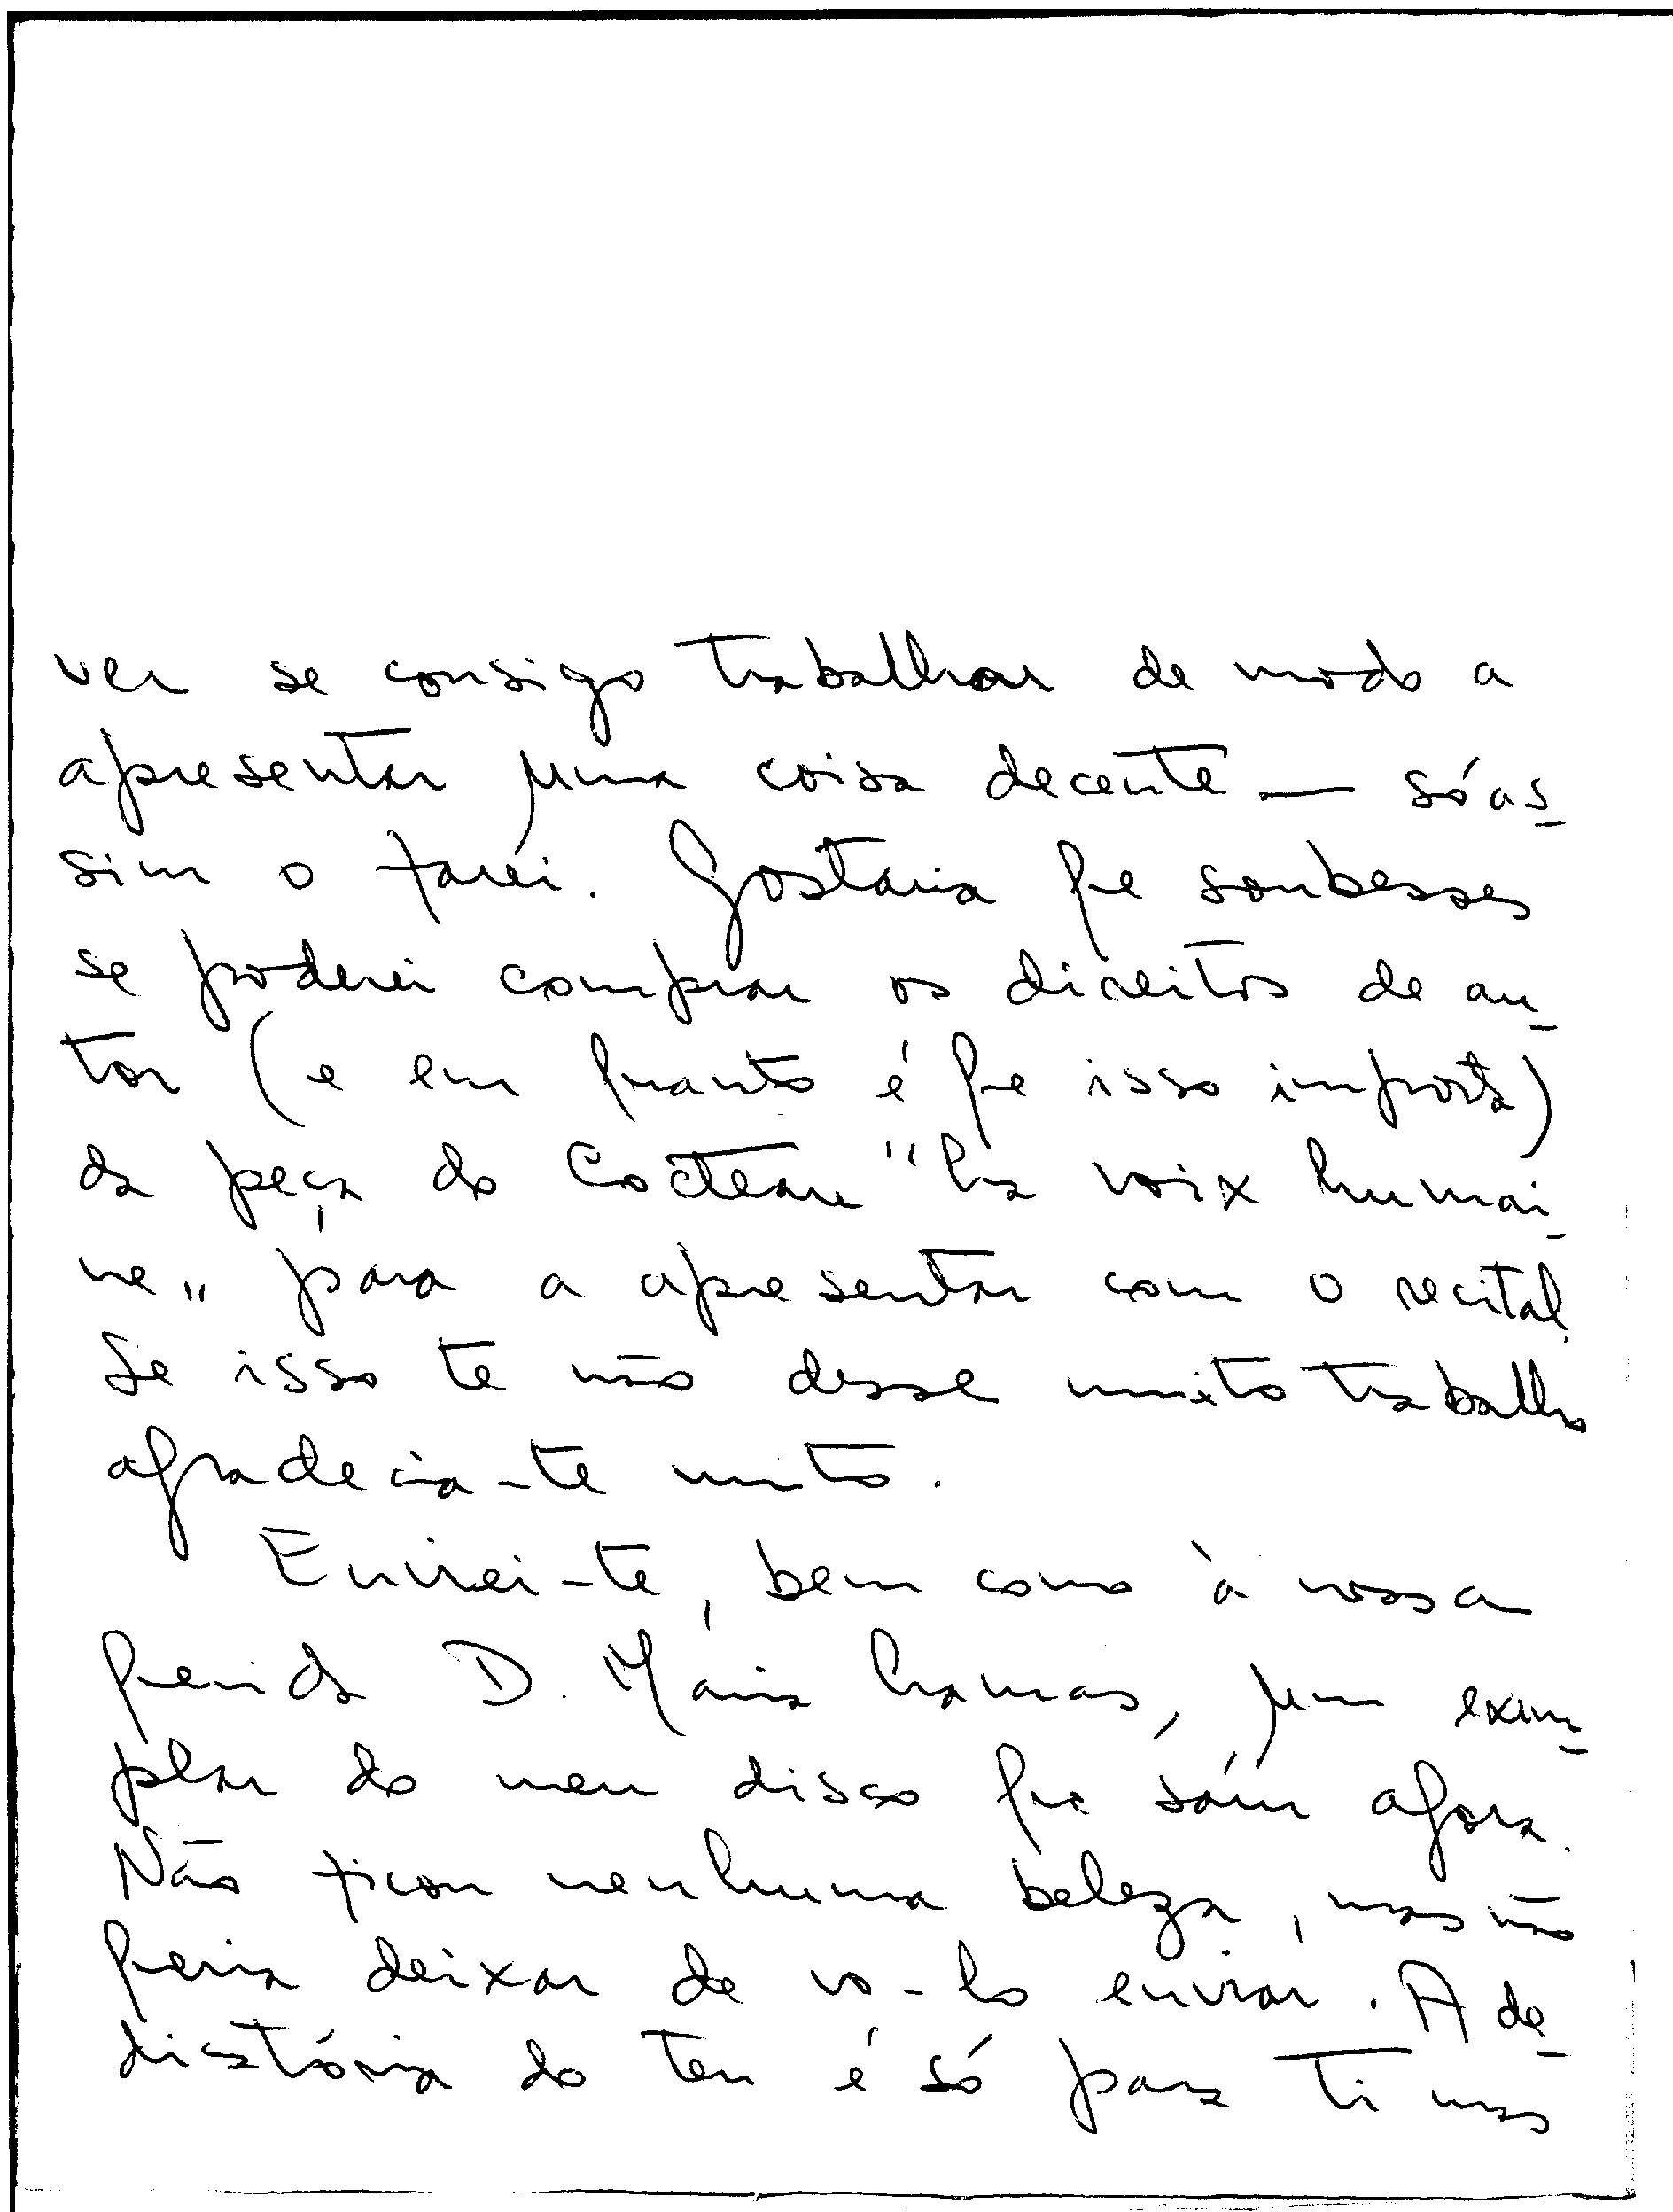 ver se consigo trabalhar de modo a
apresentar uma coisa decente — só as-
sim o farei. Gostaria que soubesses
se poderei comprar os direitos de au-
tor (e em quanto é que isso importa)
da peça do Cocteau "La voix humai-
ne" para a apresentar com o recital.
Se isso te não desse muito trabalho
agradecia-te muito.
Enviei-te, bem como à nossa
querida D. Maria Lamas, um exem-
plar do meu disco que saíu agora.
Não ficou nenhuma beleza, mas não
queria deixar de vo-lo enviar. A de-
dicatória do teu é só para ti mas